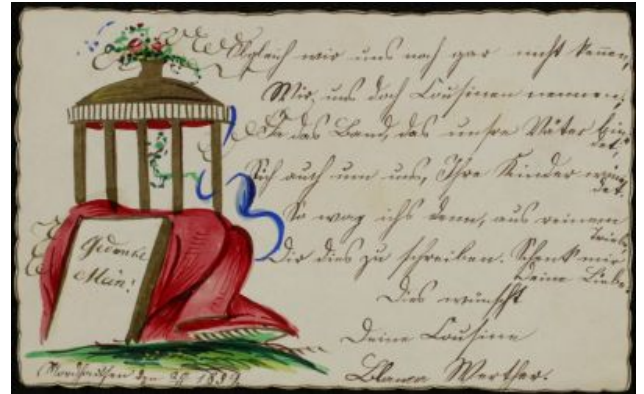 Obgleich wir uns noch gar nicht kennen,
Wir, uns doch Cousinen nennen;
Da das Band, das unsre Väter bin
det,
Sich auch um uns, Ihre Kinder win
det.
So wag ichs denn, aus reinem
Triebe
Dir dies zu schreiben. Schenk mir
Deine Liebe.
Dies wünscht
Deine Cousine
Werther.
Gedenke
Mein!
Nordhausen den 1889